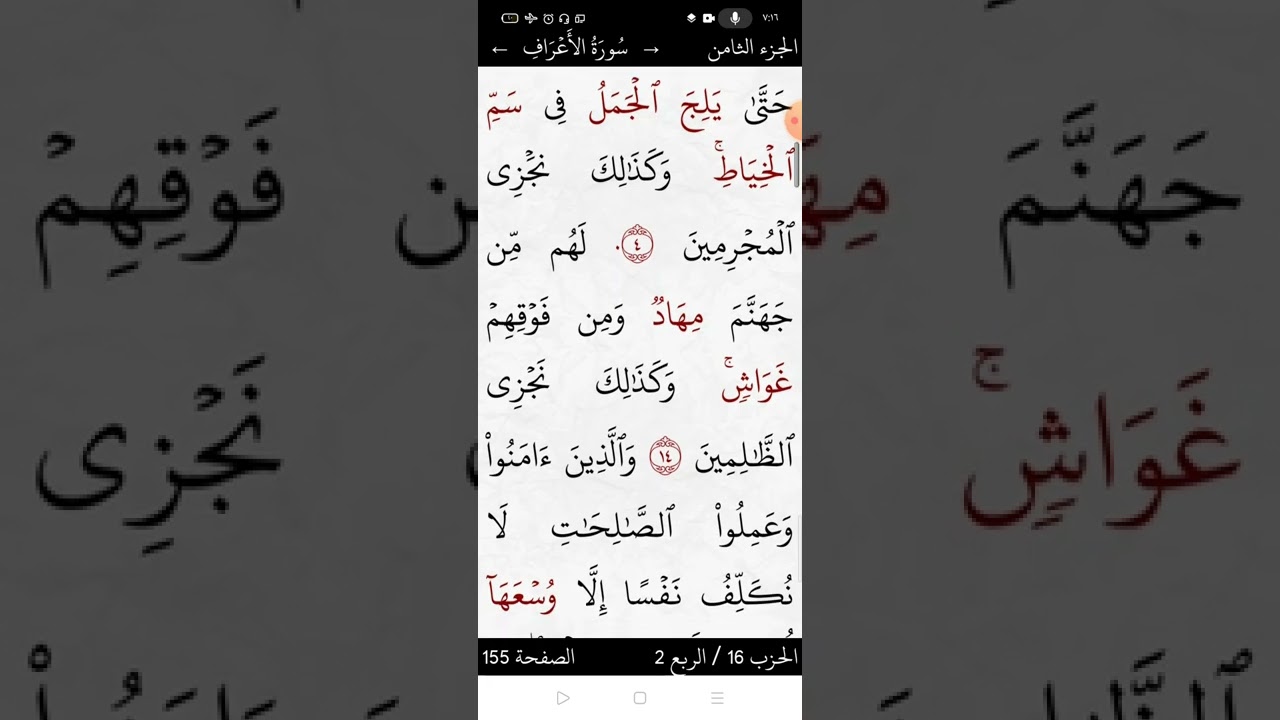 ٧:١٦
الجزء الثامن → سُورَةُ الأَعْرَافِ ←
حَتَّىٰ يَلِجَ ٱلْجَمَلُ فِى سَمِّ
ٱلْخِيَاطِ ۚ وَكَذَٰلِكَ نَجْزِى
ٱلْمُجْرِمِينَ ٤٠ لَهُم مِّن
جَهَنَّمَ مِهَادٌ وَمِن فَوْقِهِمْ
غَوَاشٍ ۚ وَكَذَٰلِكَ نَجْزِى
ٱلظَّٰلِمِينَ ٤١ وَٱلَّذِينَ ءَامَنُوا۟
وَعَمِلُوا۟ ٱلصَّٰلِحَٰتِ لَا
نُكَلِّفُ نَفْسًا إِلَّا وُسْعَهَآ
الحزب 16 / الربع 2 الصفحة 155
جَهَنَّمَ
فَوْقِهِمْ
غَوَاشٍ ۚ
نَجْزِى